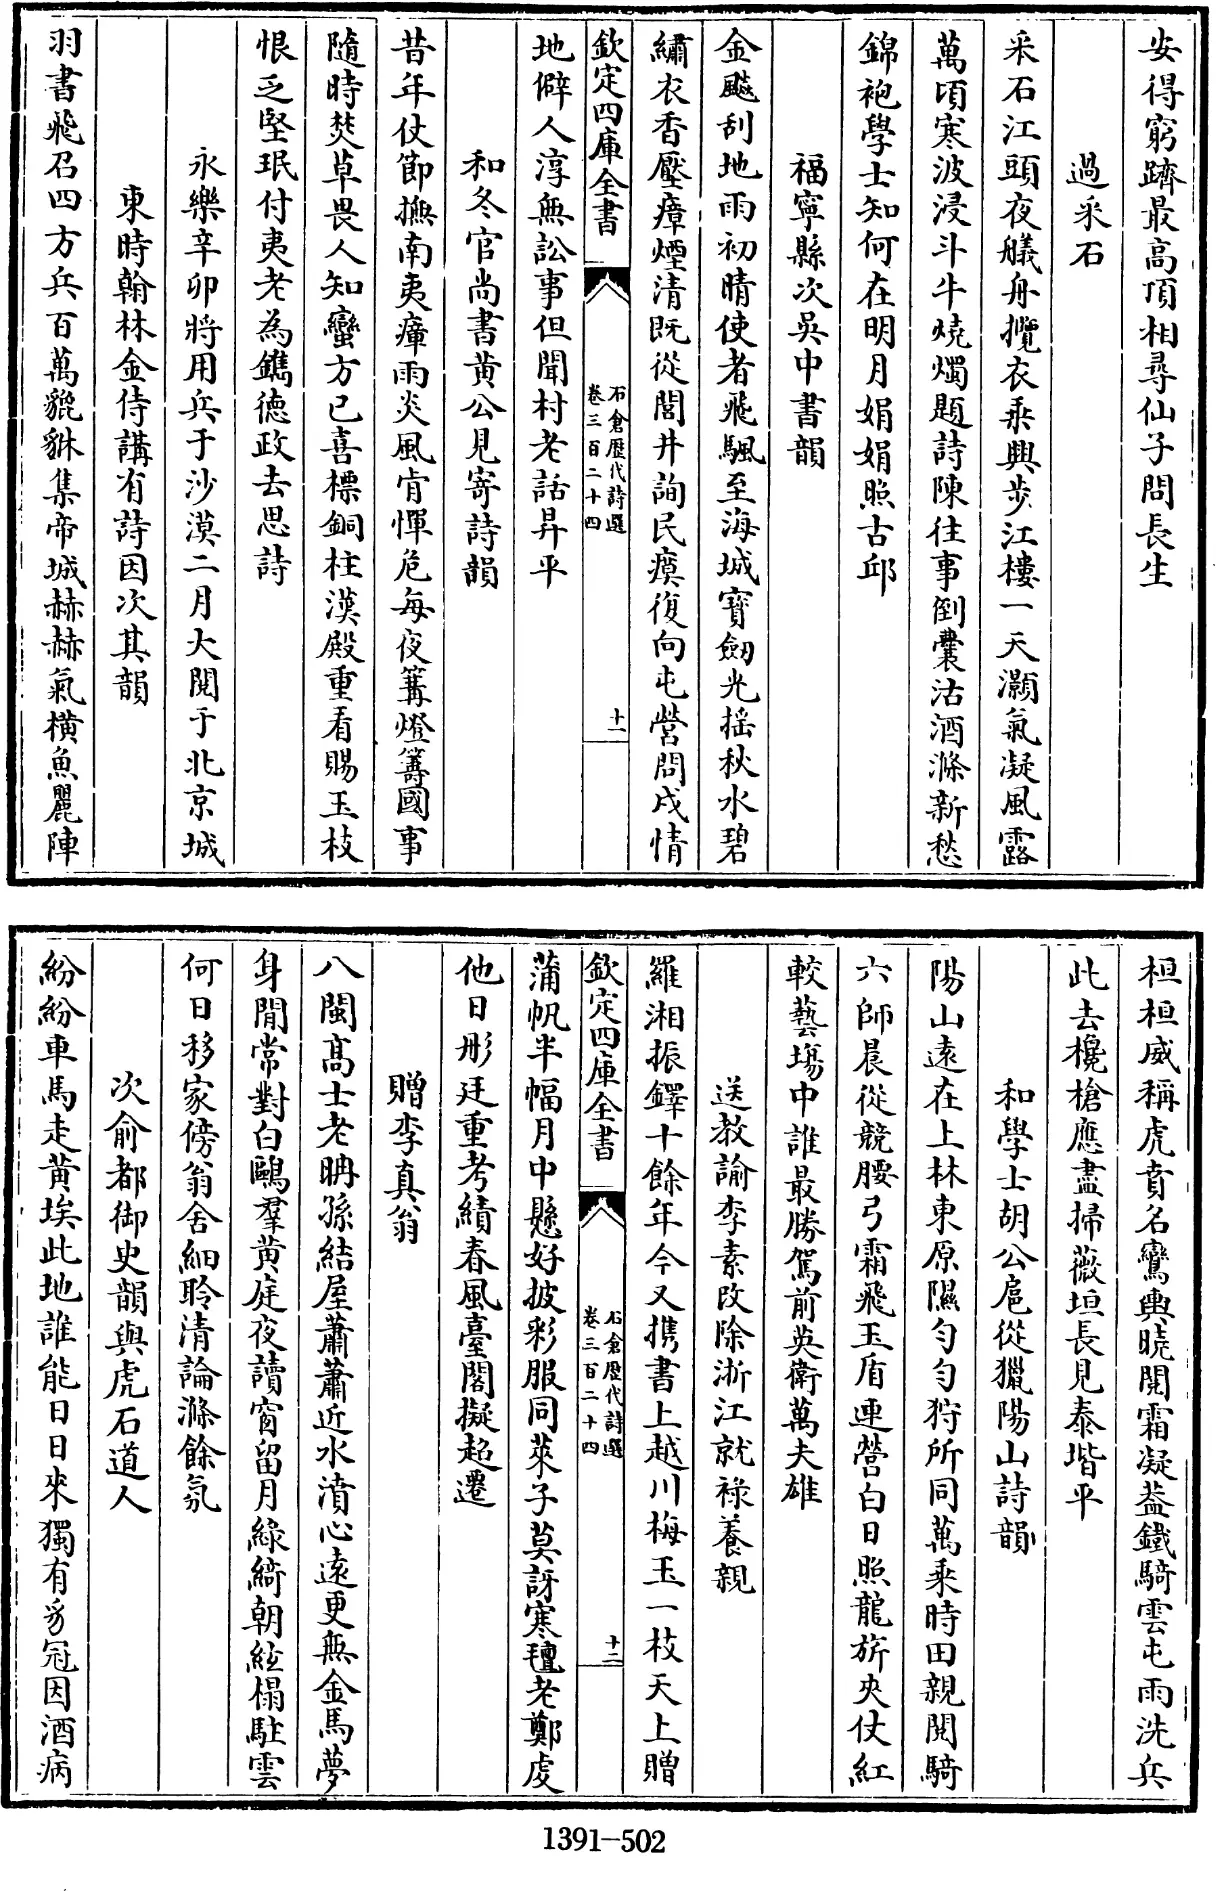 安得窮躋最高頂相尋仙子問長生
過采石
采石江頭夜艤舟攬衣乘興步江樓一天灝氣凝風露
萬頃寒波浸斗牛燒燭題詩陳往事倒囊沽酒滌新愁
錦袍學士知何在明月娟娟照古邱
福寧縣次吳中書韻
金飇刮地雨初晴使者飛驄至海城寶劒光揺秋水碧
繡衣香壓瘴煙清既從閭井詢民瘼復向屯營問戍情
欽定四庫全書
石倉歴代詩選
卷三百二十四
十一
地僻人淳無訟事但聞村老話昇平
和冬官尚書黄公見寄詩韻
昔年仗節撫南夷瘴雨炎風肯憚危每夜篝燈籌國事
隨時焚草畏人知蠻方已喜標銅柱漢殿重看賜玉枝
恨乏堅珉付夷老為鐫徳政去思詩
永樂辛卯將用兵于沙漠二月大閱于北京城
東時翰林金侍講有詩因次其韻
羽書飛召四方兵百萬貔貅集帝城赫赫氣横魚麗陣
桓桓威稱虎賁名鸞輿曉閱霜凝葢鐵騎雲屯雨洗兵
此去欃槍應盡掃薇垣長見泰堦平
和學士胡公扈從獵陽山詩韻
陽山遠在上林東原隰勻勻狩所同萬乘時田親閱騎
六師晨從競腰弓霜飛玉盾連營白日照龍旂夾仗紅
較藝塲中誰最勝駕前英衛萬夫雄
送教諭李素改除浙江就禄養親
羅湘振鐸十餘年今又携書上越川梅玉一枝天上贈
欽定四庫全書
石倉歴代詩選
卷三百二十四
十二
蒲帆半幅月中懸好披彩服同萊子莫訝寒氊老鄭虔
他日彤廷重考績春風臺閣擬超遷
贈李真翁
八閩髙士老聃孫結屋蕭蕭近水濆心遠更無金馬夢
身閒常對白鷗羣黄庭夜讀窗留月綠綺朝絃榻駐雲
何日移家傍翁舍細聆清論滌餘氛
次俞都御史韻與虎石道人
紛紛車馬走黄埃此地誰能日日來獨有豸冠因酒病
1391-502